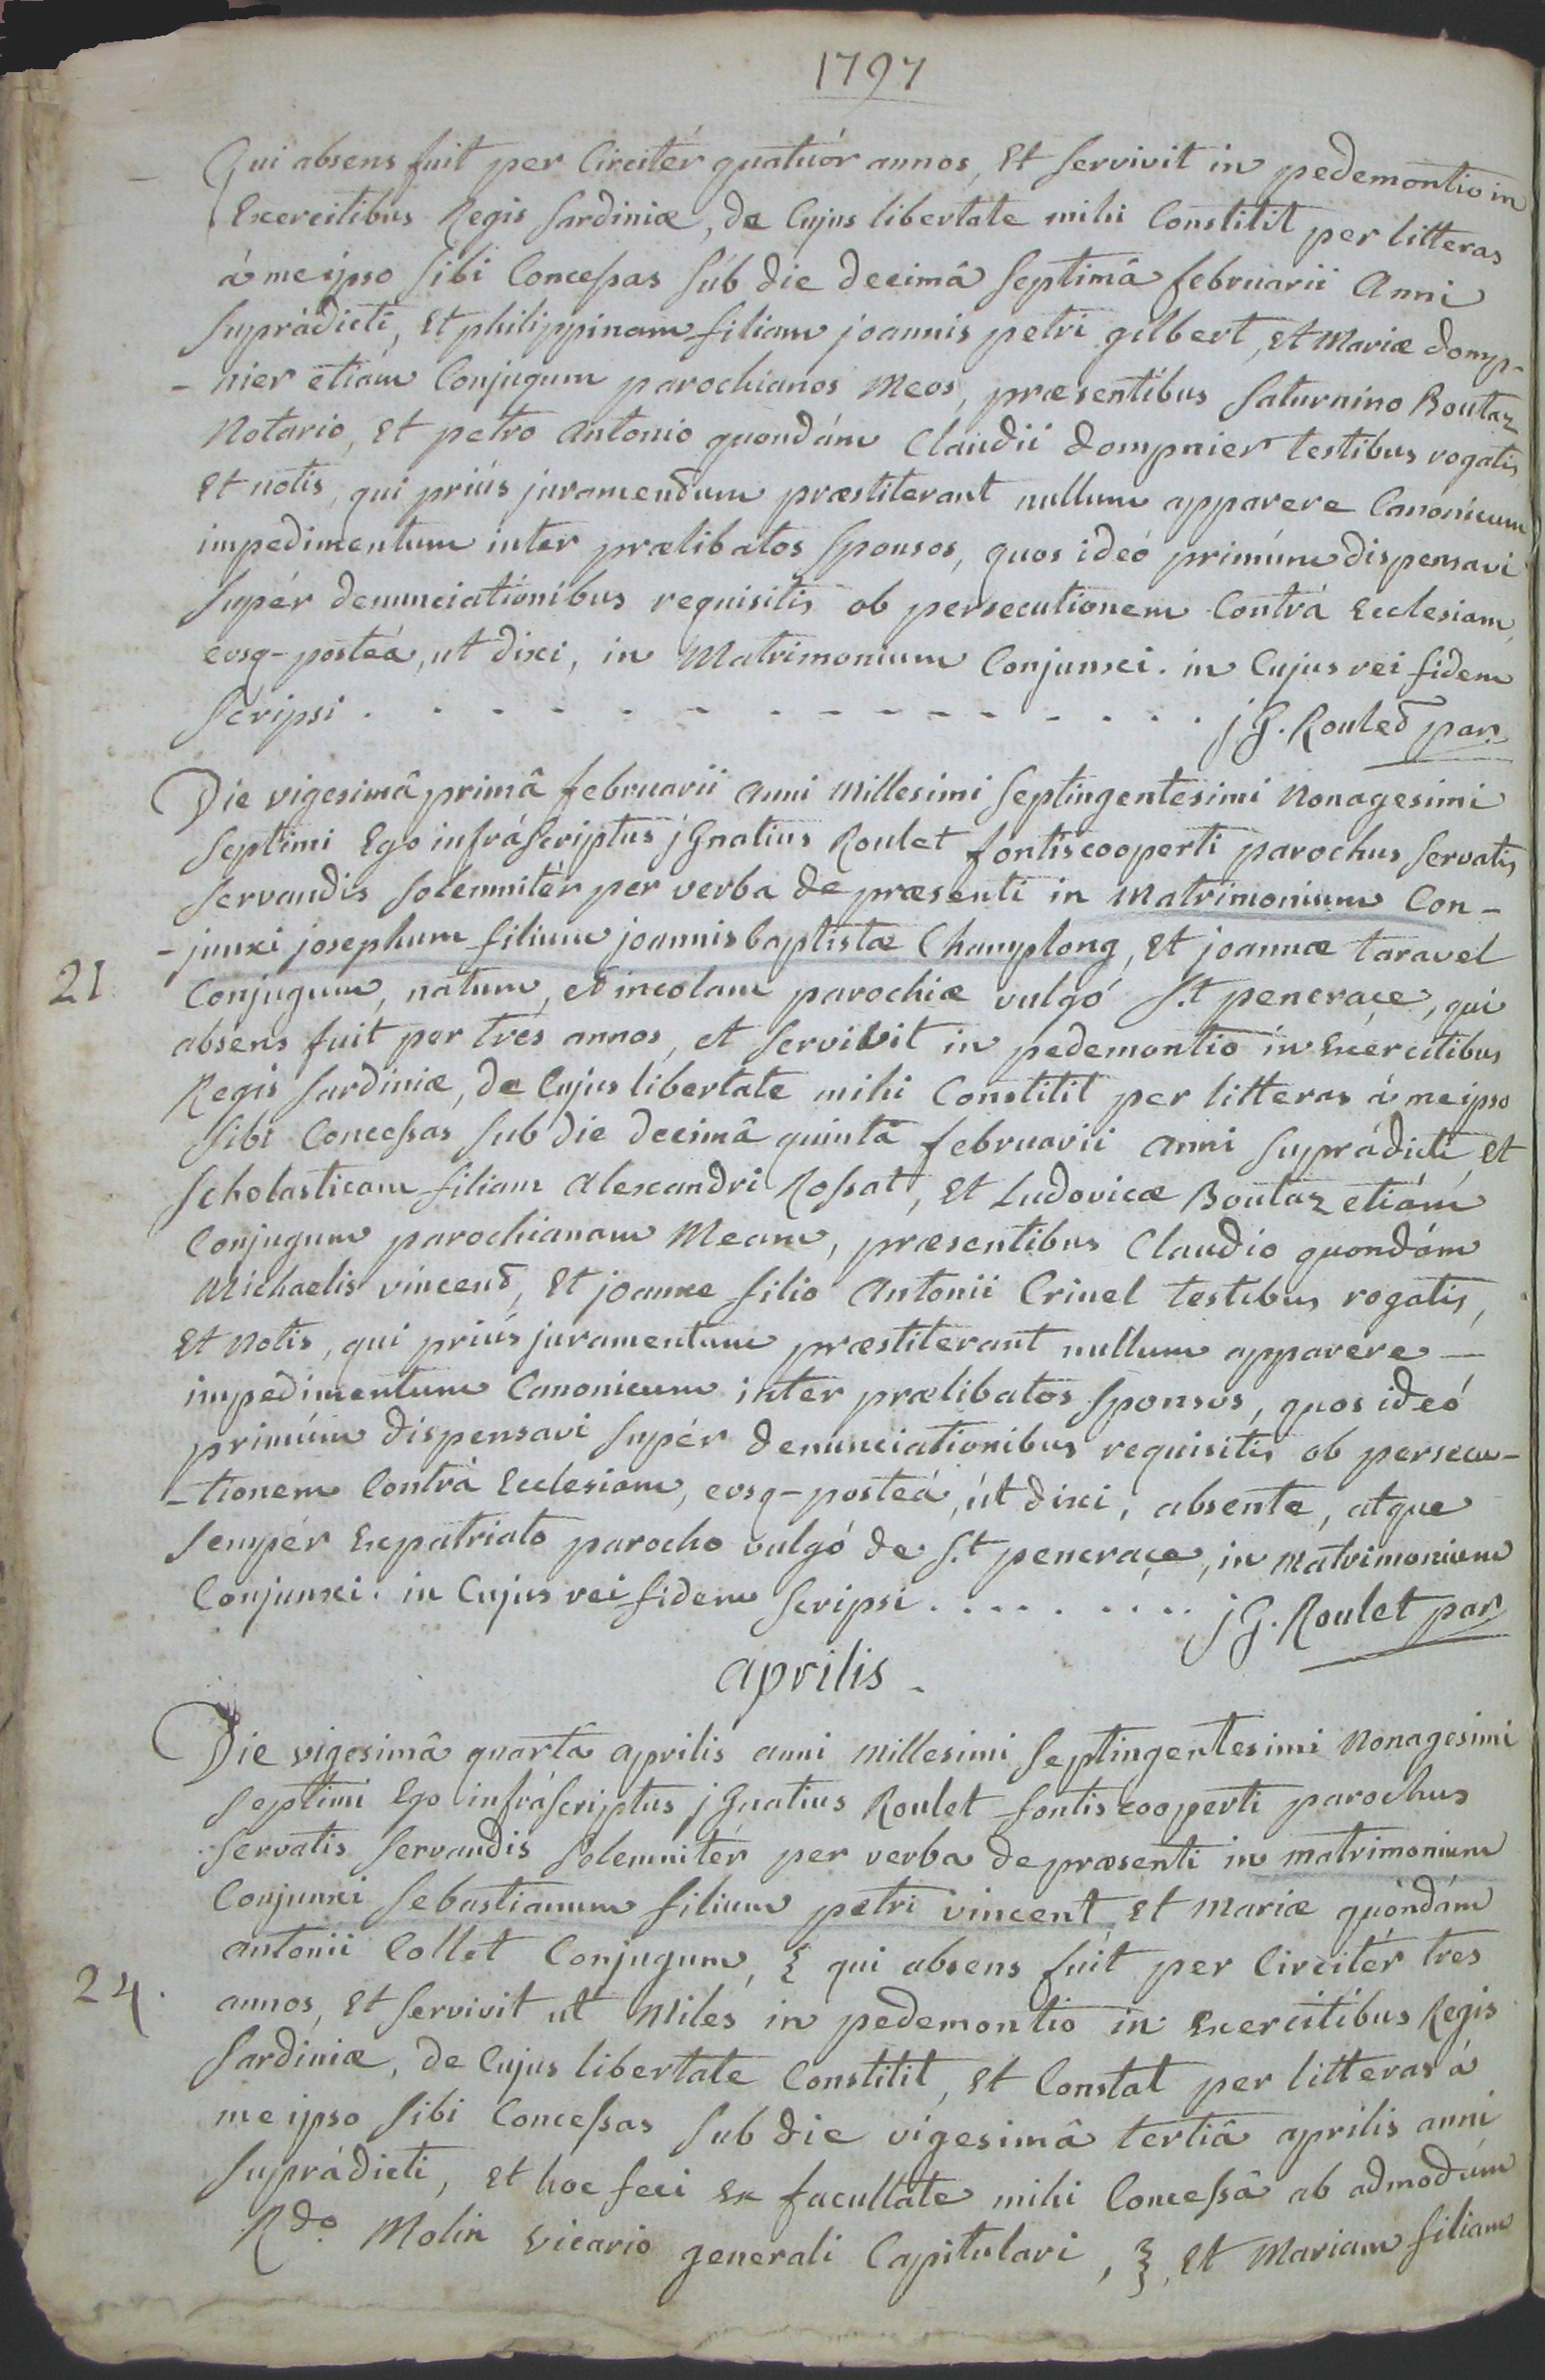 1797
Qui absens fuit per Circitér quatuór annos, Et servivit in pedemontio in
Exercitibus Regis sardiniæ, de Cujus libertate mihi Constitit per litteras
á me ipso sibi Concessas súb die decimâ septimâ februarii Anni
suprádicti, Et philippinam filiam joannis petri gilbert, Et Mariæ domp-
- nier etiám Conjugum parochianos Meos, præsentibus saturnino Boutaz
Notario, Et petro Antonio quondám Claudii dompnier testibus rogatis,
Et notis, qui priùs juramendum præstiterant nullum apparere Canónicum
impedimentum inter prælibatos sponsos, quos ideó primúm dispensavi
supér denunciatiónibus requisitis ob persecutionem Contrá Ecclesiam,
eosq- posteá, ut dixi, in Matrimonium Conjunxi. in Cujus rei fidem
scripsi . . - - - - - - - - - - - - . . . j G. Rouled par.
Die vigesimâ primâ februarii Anni Millesimi septingentesimi Nonagesimi
septimi Ego infráscriptus jGnatius Roulet fontiscooperti parochus servatis
servandis solemnitér per verba de præsenti in Matrimonium Con-
- junxi josephum filium joannisbaptistæ Champlong, Et joannæ taravel
21 Conjugum, natum, et incolam parochiæ vulgó s.t pencraçe, qui
absens fuit per três annos, et servivit in pedemontio in Exércitibus
Regis sardiniæ, de Cujus libertate mihi Constitit per litteras á me ipso
sibi Concessas sub die decimâ quintâ februarii Anni suprádicti, Et
scholasticam filiam Alexandri Rossat, Et Ludovicæ Boutaz etiám
Conjugum parochianam Meam, præsentibus Claudio quondám
Michaelis vincend, Et joanne filio Antonii Crinel testibus rogatis,
Et Notis, qui priús juramentum præstiterant nullum apparere —
impedimentum Canonicum inter prælibatos sponsos, quos ideó
primúm dispensavi supér denunciationibus requisitis ob persecu-
- tionem Contrá Ecclesiam, eosq- posteá, út dixi, absente, atque
sempér Expatriato parocho vulgó de s.t pencraçe, in matrimonium
Conjunxi. in Cujus rei fidem scripsi . . . . . . . . . j G. Roulet par
aprilis -
Die vigesimâ quarta aprilis anni Millesimi septingentesimi Nonagesimi
septimi Ego infráscriptus jGnatius Roulet fontiscooperti parochus
servatis servandis solemnitér per verba de præsenti in matrimonium
Conjunxi sebastianum filium petri vincent, Et Mariæ quóndám
antonii Collet Conjugum, { qui absens fuit per Circitér tres
24. annos, Et servivit ut Milés in pedemontio in Exercitibus Regis
sardiniæ, de Cujus libertate Constitit, Et Constat per litteras á
me ipso sibi Concessas sub die vigesimâ tertiâ aprilis anni
suprádicti, Et hoc feci Ex facultate mihi Concessâ ab admodúm
Rdo. Molin vicario generali Capitulari, }, Et Mariam filiam